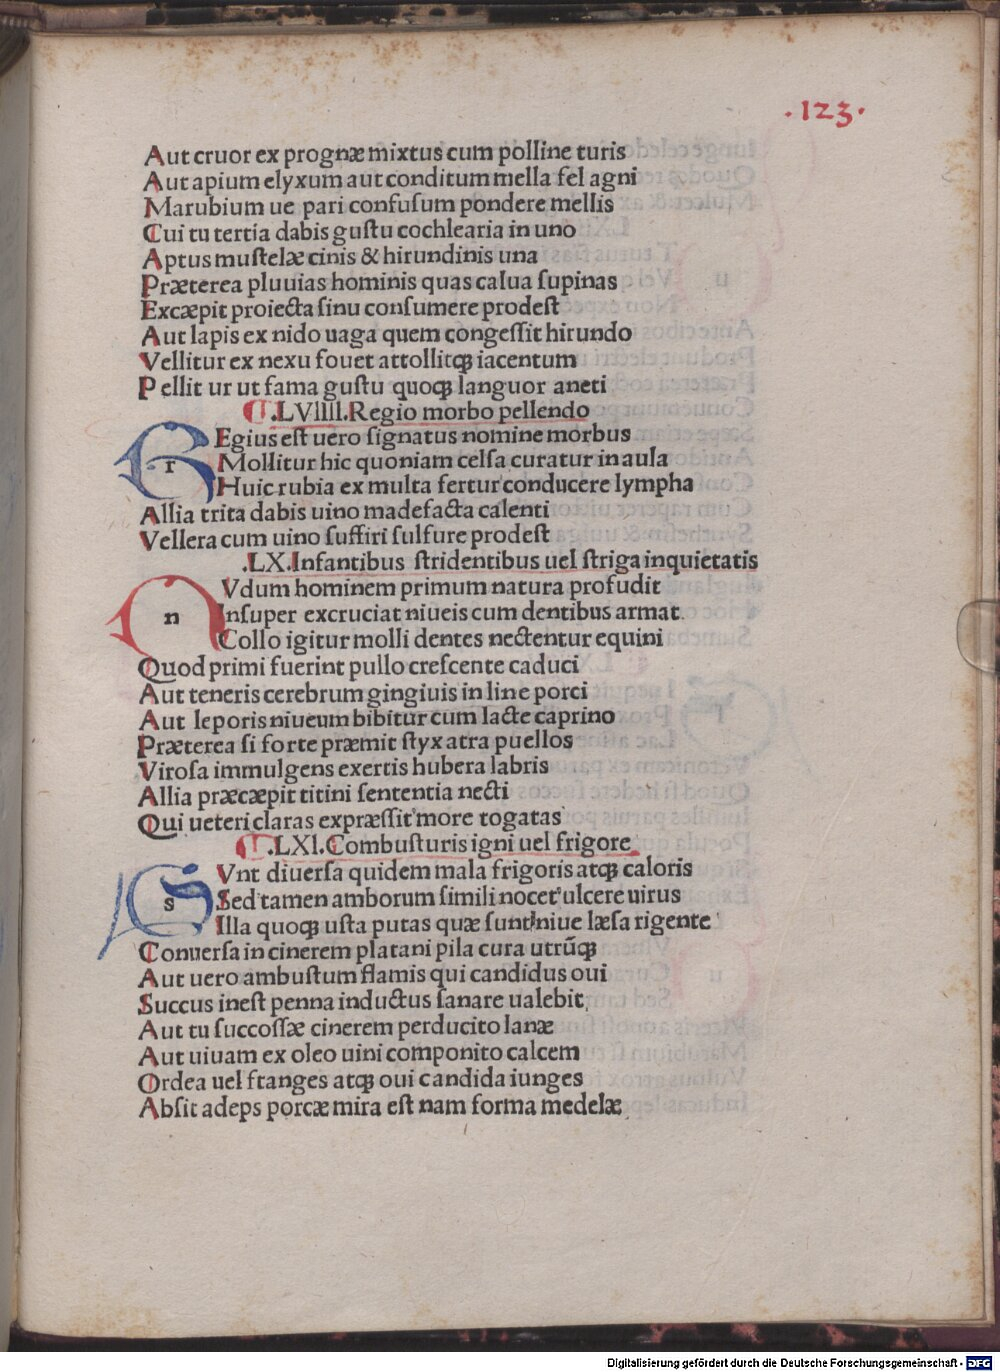 .123.
Aut cruor ex prognæ mixtus cum polline turis
Aut apium elyxum aut conditum mella fel agni
Marubium ue pari confuſum pondere mellis
Cui tu tertia dabis guſtu cochlearia in uno
Aptus muſtelæ cinis & hirundinis una
Præterea pluuias hominis quas calua ſupinas
Excæpit proiecta ſinu conſumere prodeſt
Aut lapis ex nido uaga quem congeſſit hirundo
Vellitur ex nexu fouet attollitqꝫ iacentum
Pellit ur ut fama guſtu quoqꝫ languor aneti
.LVIIII.Regio morbo pellendo
r Egius eſt uero ſignatus nomine morbus
Mollitur hic quoniam celſa curatur in aula
Huic rubia ex multa fertur conducere lympha
Allia trita dabis uino madefacta calenti
Vellera cum uino ſuffiri ſulfure prodeſt
.LX.Infantibus ſtridentibus uel ſtriga inquietatis
n Vdum hominem primum natura profudit
Inſuper excruciat niueis cum dentibus armat.
Collo igitur molli dentes nectentur equini
Quod primi fuerint pullo creſcente caduci
Aut teneris cerebrum gingiuis in line porci
Aut leporis niueum bibitur cum lacte caprino
Præterea ſi forte præmit ſtyx atra puellos
Viroſa immulgens exertis hubera labris
Allia præcæpit titini ſententia necti
Qui ueteri claras expræſſit more togatas
.LXI.Combuſturis igni uel frigore
s Vnt diuerſa quidem mala frigoris atqꝫ caloris
Sed tamen amborum ſimili nocet ulcere uirus
Illa quoqꝫ uſta putas quæ ſunt niue læſa rigente
Conuerſa in cinerem platani pila cura utrūqꝫ
Aut uero ambuſtum flamis qui candidus oui
Succus ineſt penna inductus ſanare ualebit
Aut tu ſuccoſſæ cinerem perducito lanæ
Aut uiuam ex oleo uini componito calcem
Ordea uel franges atqꝫ oui candida iunges
Abſit adeps porcæ mira eſt nam forma medelæ
Digitalisierung gefördert durch die Deutsche Forschungsgemeinschaft - DFG